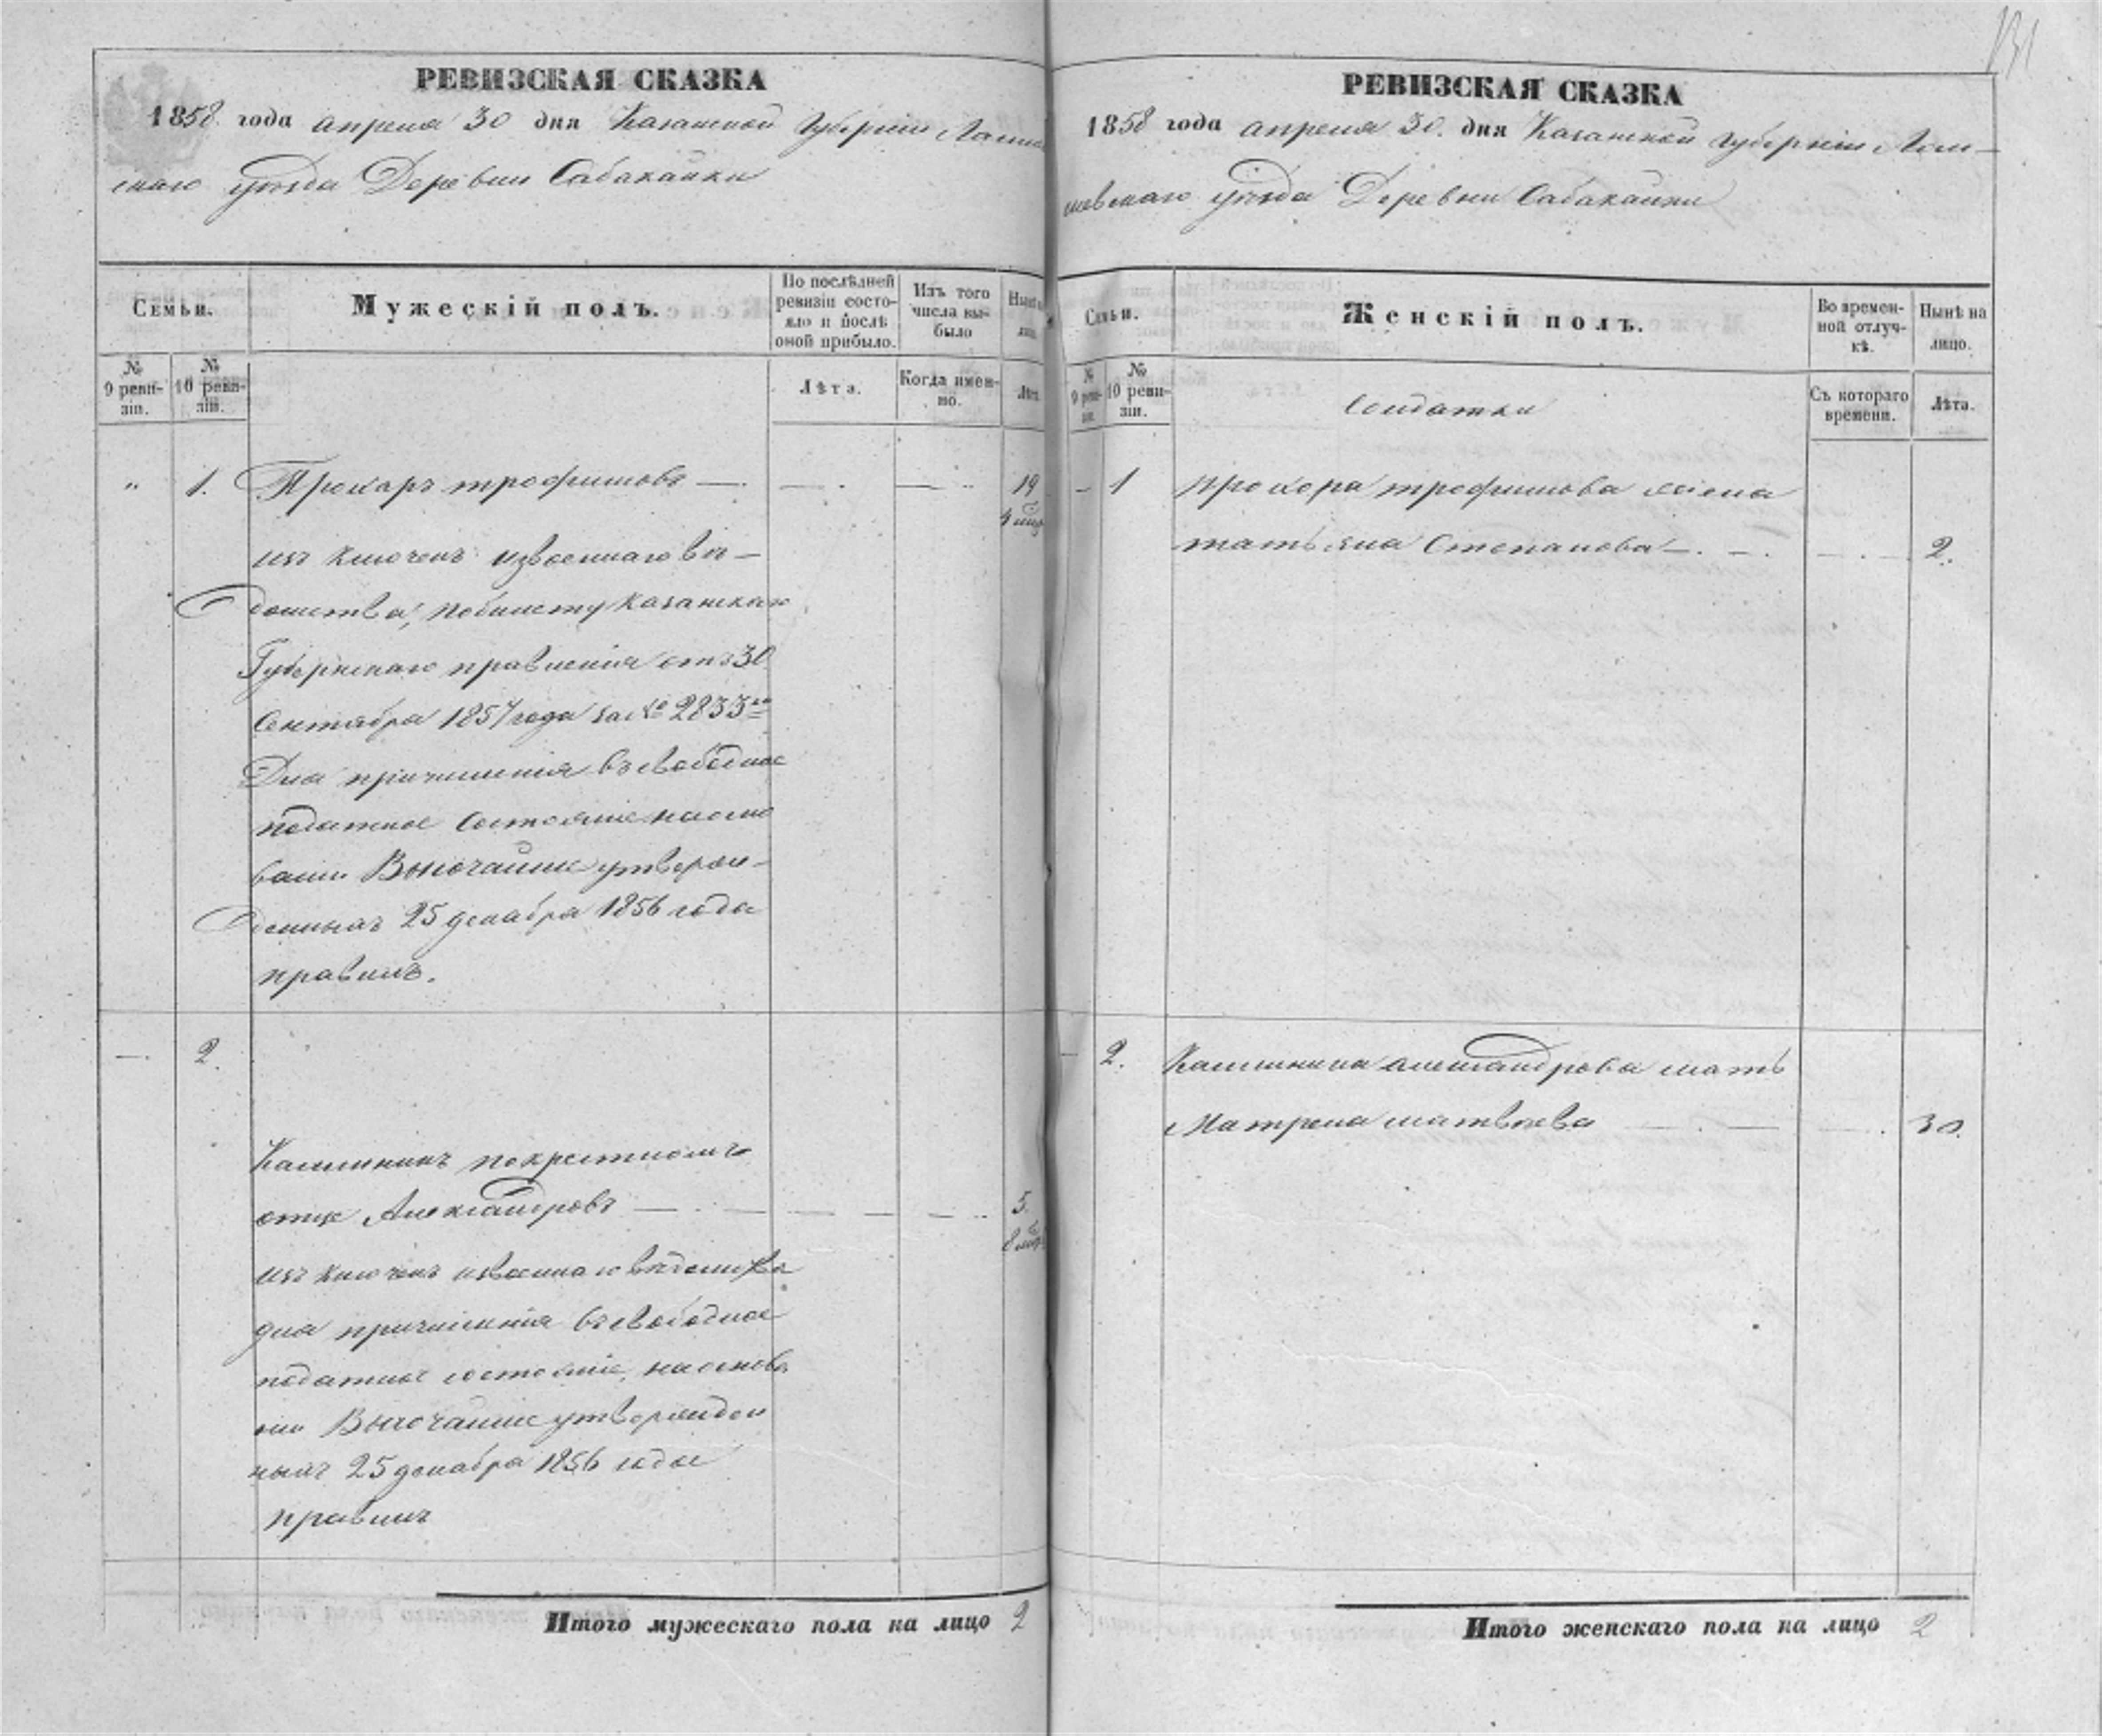 РЕВИЗСКАЯ СКАЗКА
1858 года апреля 30 дня Казанской Губернiи Лаише
скаго уѣзда Деревни Сабакайки
Семьи.
Мужескій полъ.
По послѣдней ревизіи состояло и послѣ оной прибыло.
Изъ того числа выбыло
Нынѣ на лицо
№ 9 ревизіи.
№ 10 ревизіи.
Лѣта.
Когда именно.
Лѣта
" 1. Прохаръ трофимовъ — 19
4 мѣс
изъ ключенъ извоеннаго вѣ-
домства, побилету Казанскаго
Губернскаго правленія отъ 30
Сентября 1857 года за № 2833
Для причисленія въ свободное
податное состояніе наосно
вани Высочайше утверж-
денныхъ 25 декабря 1856 года
правилъ.
— 2.
Калининъ покрестному
отце Александровъ — 5.
8 мѣс
изъ ключенъ извоеннаго вѣдомства
для причисленія въ свободное
податное состояніе, наоснова
нии Высочайше утвержден
ныхъ 25 декабря 1856 года
правилъ
Итого мужескаго пола на лицо 2
131
РЕВИЗСКАЯ СКАЗКА
1858 года апреля 30. дня Казанской губерніи Лаи-
шевскаго уѣзда Деревни Сабакайки
Семьи.
Женскій полъ.
Во временной отлучкѣ.
Нынѣ на лицо.
№ 9 ревизіи.
№ 10 ревизіи.
Солдатки
Съ котораго времени.
Лѣта.
— 1 прохора трофимова жена
татьяна Степанова — 2.
— 2. Калинина александрова мать
Матрена матвѣева — 30.
Итого женскаго пола на лицо 2